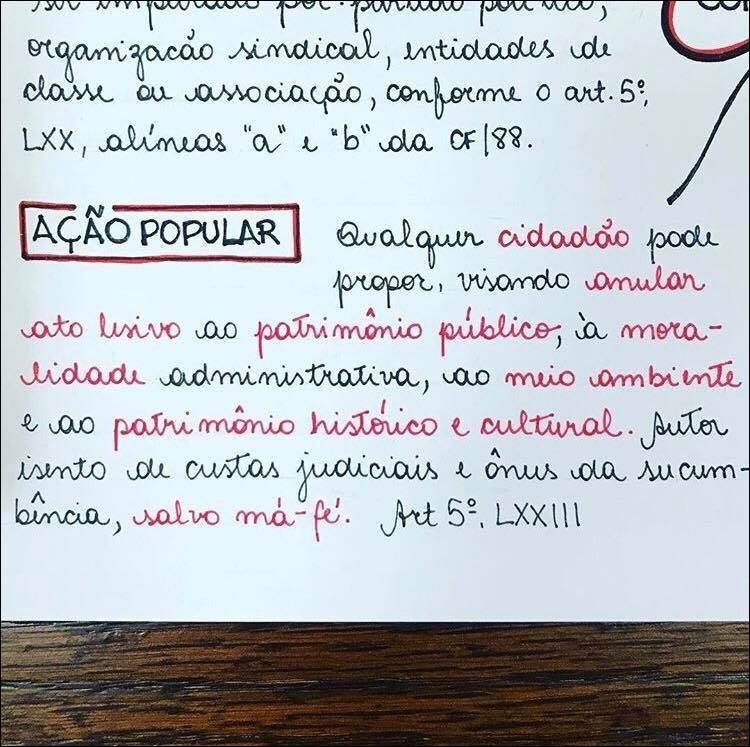 ser impetrado por: partido político,
organizacão sindical, entidades de
classe ou associação, conforme o art. 5º,
LXX, alíneas "a" e "b" da CF/88.
AÇÃO POPULAR Qualquer cidadão pode
propor, visando anular
ato lesivo ao patrimônio público, à mora-
lidade administrativa, ao meio ambiente
e ao patrimônio histórico e cultural. Autor
isento de custas judiciais e ônus da sucum-
bência, salvo má-fé. Art 5º, LXXIII